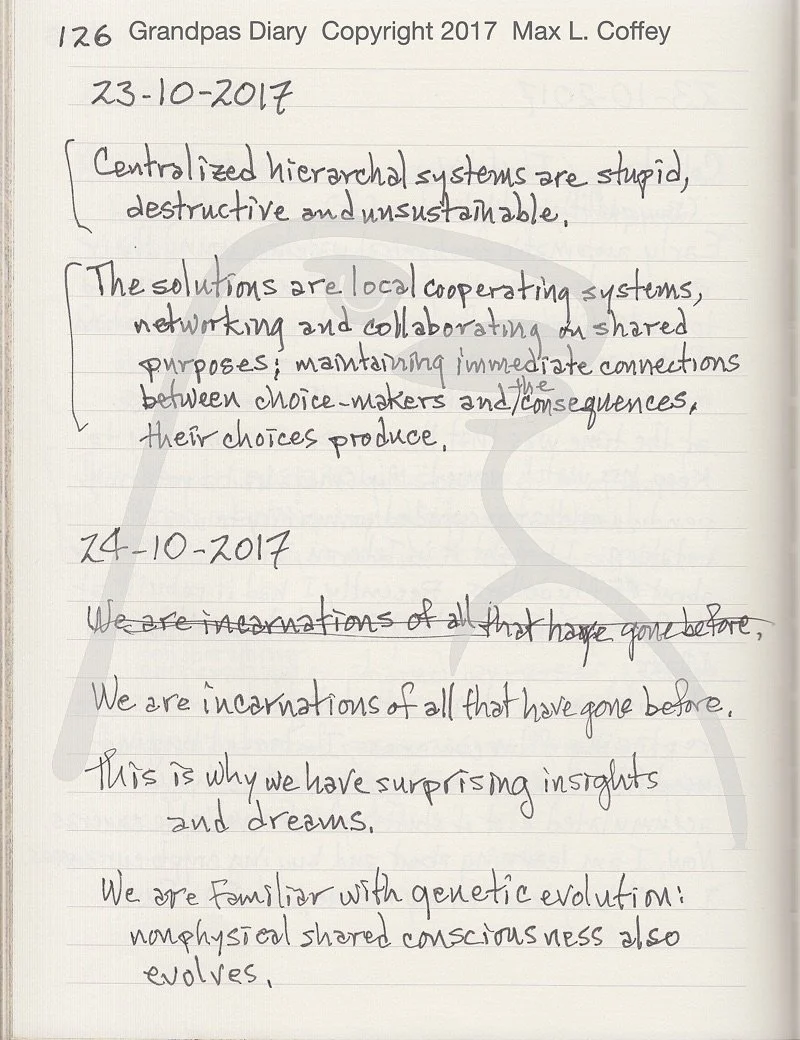 126 Grandpas Diary Copyright 2017 Max L. Coffey
23-10-2017
Centralized hierarchal systems are stupid,
destructive and unsustainable.
The solutions are local cooperating systems,
networking and collaborating on shared
purposes; maintaining immediate connections
between choice-makers and the consequences,
their choices produce.
24-10-2017
We are incarnations of all that have gone before.
We are incarnations of all that have gone before.
This is why we have surprising insights
and dreams.
We are familiar with genetic evolution:
nonphysical shared consciousness also
evolves.